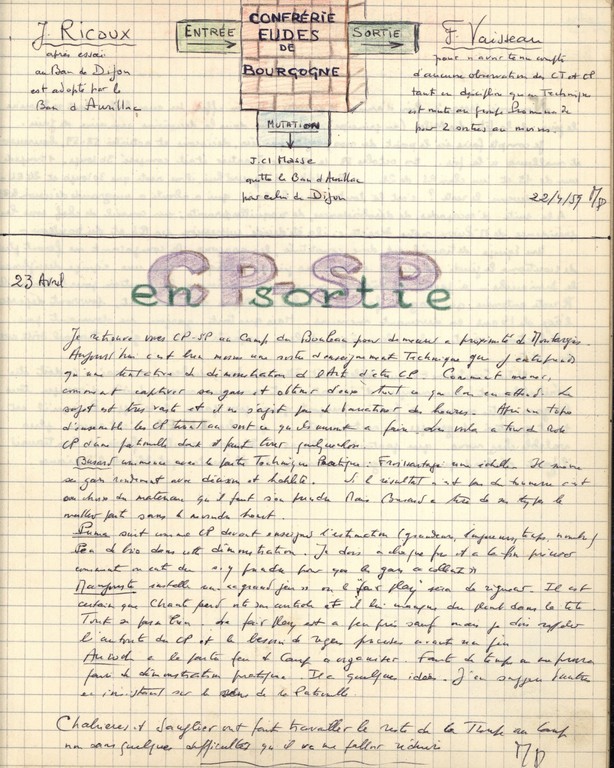 J. Ricoux
après essai
au Ban de Dijon
est adopté par le
Ban d'Aurillac
ENTRÉE
CONFRÉRIE
EUDES
DE
BOURGOGNE
SORTIE
F. Vaisseau
pour n'avoir tenu compte
d'aucune observation des CT et CP
tant en discipline qu'en Technique
est muté au groupe
pour 2 sorties au moins.
MUTATION
J.Cl Masse
quitte le Ban d'Aurillac
pour celui de Dijon
22/4/59
23 Avril
CP-SP
en sortie
Je retrouve mes CP-SP au Camp du Bouleau pour demeurer à proximité de Montargis.
Aujourd'hui c'est bien moins une sortie d'enseignement Technique que j'entreprends
qu'une tentative de démonstration de l'Art d'être CP. Comment mener,
comment captiver ses gars et obtenir d'eux tout ce que l'on en attend. Le
sujet est très vaste et il ne s'agit pas de des heures. Afin
d'ensemble les CP ce qu'ils auront à faire. à tour de rôle
CP d'une patrouille dont il faut tirer quelque chose.
Busard commence avec la partie Technique Pratique : Froissartage une échelle. Il mène
ses gars rondement avec diction et habileté. Si le résultat n'est pas c'est
au choix du matériau qu'il faut s'en prendre. Mais a tiré de ses types le
meilleur parti sans le moindre heurt.
Puma suit comme CP devant enseigner l'estimation (grandeur, longueurs, temps, nombre)
Peu de brio dans cette démonstration. Je dois à chaque fois et à la fin préciser
comment on eut dû s'y prendre pour que les gars "accrochent"
Mangouste installe un "grand jeu" où le "fair play" sera de rigueur. Il est
certain que Chant perd vite son et il lui manque du plomb dans la tête.
Tout se passe bien. Le fair play est à peu près sauf mais je dois rappeler
l'autorité du CP et le besoin de règles précises
a la partie feu de Camp à organiser. Faute de temps on ne pourra
faire de démonstration pratique. Il a quelques idées. J'en suggère d'autres
en insistant sur le sens de la Patrouille
et Sanglier ont fait travailler le reste de la Troupe au Camp
non sans quelques difficultés qu'il va me falloir réduire